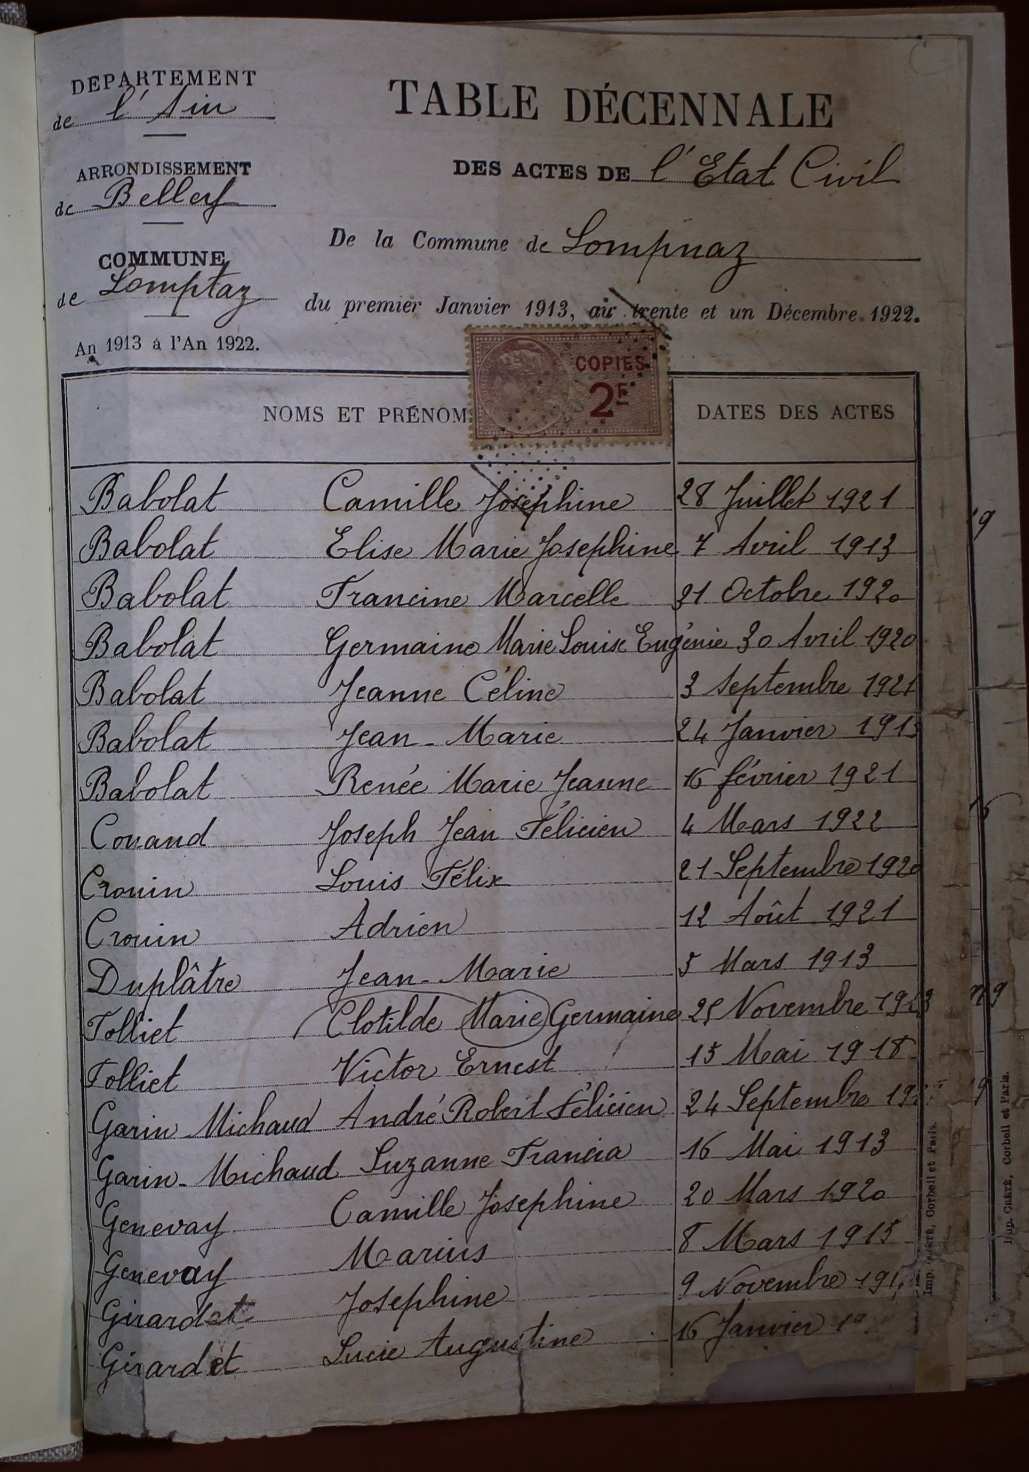 DEPARTEMENT
de l'Ain
ARRONDISSEMENT
de Belley
COMMUNE
de Lomptaz
An 1913 à l'An 1922.
TABLE DÉCENNALE
DES ACTES DE l'Etat Civil
De la Commune de Lompnaz
du premier Janvier 1913, au trente et un Décembre 1922.
COPIES
2F
NOMS ET PRÉNOM
DATES DES ACTES
Babolat Camille Joséphine 28 Juillet 1921
Babolat Elise Marie Josephine 7 Avril 1913
Babolat Francine Marcelle 31 Octobre 1920
Babolat Germaine Marie Louise Eugénie 30 Avril 1920
Babolat Jeanne Céline 3 Septembre 1921
Babolat Jean-Marie 24 Janvier 1913
Babolat Renée Marie Jeanne 16 février 1921
Couand Joseph Jean Félicien 4 Mars 1922
Crouin Louis Félix 21 Septembre 1920
Crouin Adrien 12 Août 1921
Duplâtre Jean-Marie 5 Mars 1913
Folliet Clotilde Marie Germaine 25 Novembre
Folliet Victor Ernest 15 Mai 1918
Garin Michaud André Robert Félicien 24 Septembre
Garin-Michaud Suzanne Francia 16 Mai 1913
Genevay Camille Josephine 20 Mars 1920
Genevay Marius 8 Mars 1915
Girardet Josephine 9 Novembre
Girardet Lucie Augustine 16 Janvier
Imp. CRÉTÉ, Corbeil et Paris.
Imp. CRÉTÉ, Corbeil et Paris.